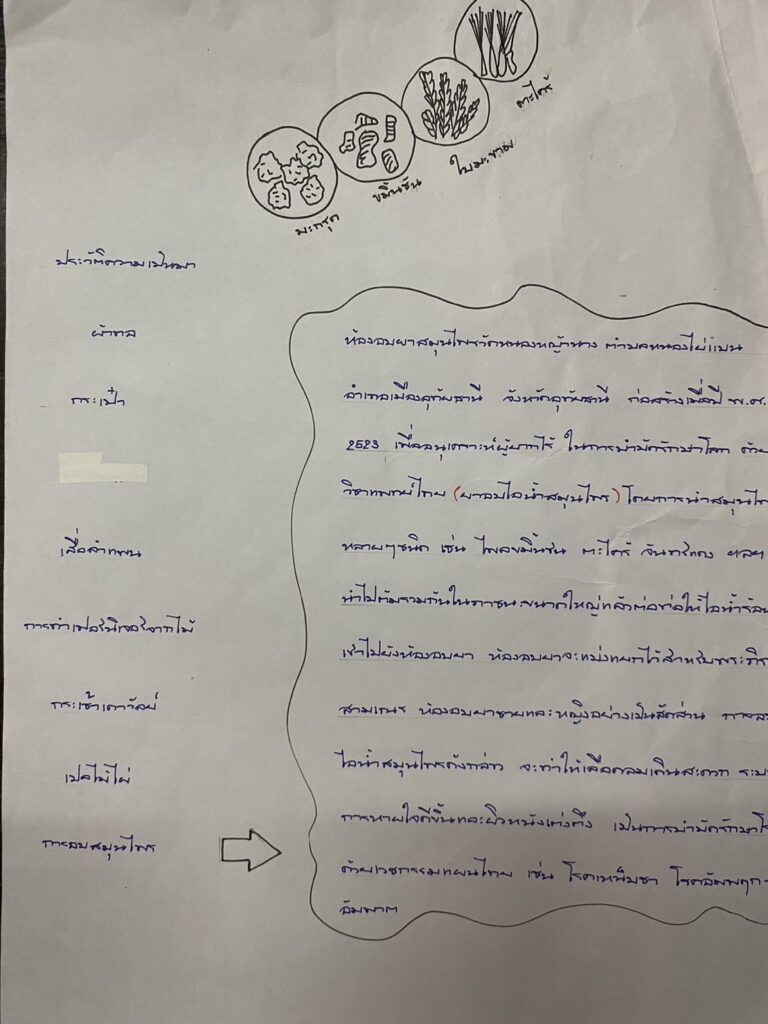 ตะไคร้
ใบมะขาม
ขมิ้นชัน
มะกรูด
ประวัติความเป็นมา
ผ้าทอ
กระเป๋า
เสื่อลำแพน
การทำเฟอร์นิเจอร์จากไม้
กระเช้าเถาวัลย์
เปลไม้ไผ่
การอบสมุนไพร
ห้องอบยาสมุนไพรวัดหนองหญ้านาง ตำบลหนองไผ่แบน
อำเภอเมืองอุทัยธานี จังหวัดอุทัยธานี ก่อสร้างเมื่อปี พ.ศ.
2523 เพื่ออนุเคราะห์ผู้ยากไร้ ในการบำบัดรักษาโรค ด้วย
วิชาแพทย์ไทย (ยาอบไอน้ำสมุนไพร) โดยการนำสมุนไพ
หลายๆชนิด เช่น ไพลขมิ้นชัน ตะไคร้ จันทร์แดง ฯลฯ
นำไปต้มรวมกันในภาชนะขนาดใหญ่แล้วต่อท่อให้ไอน้ำร้อน
เข้าไปยังห้องอบยา ห้องอบยาจะแบ่งแยกไว้สำหรับพระภิก
สามเณร ห้องอบยาชายและหญิงอย่างเป็นสัดส่วน การอ
ไอน้ำสมุนไพรดังกล่าว จะทำให้เลือดลมเดินสะดวก ระบ
การหายใจดีขึ้นและผิวหนังเต่งตึง เป็นการบำบัดรักษาโร
ด้วยเวชกรรมแผนไทย เช่น โรคเหน็บชา โรคอัมพฤก
อัมพาต